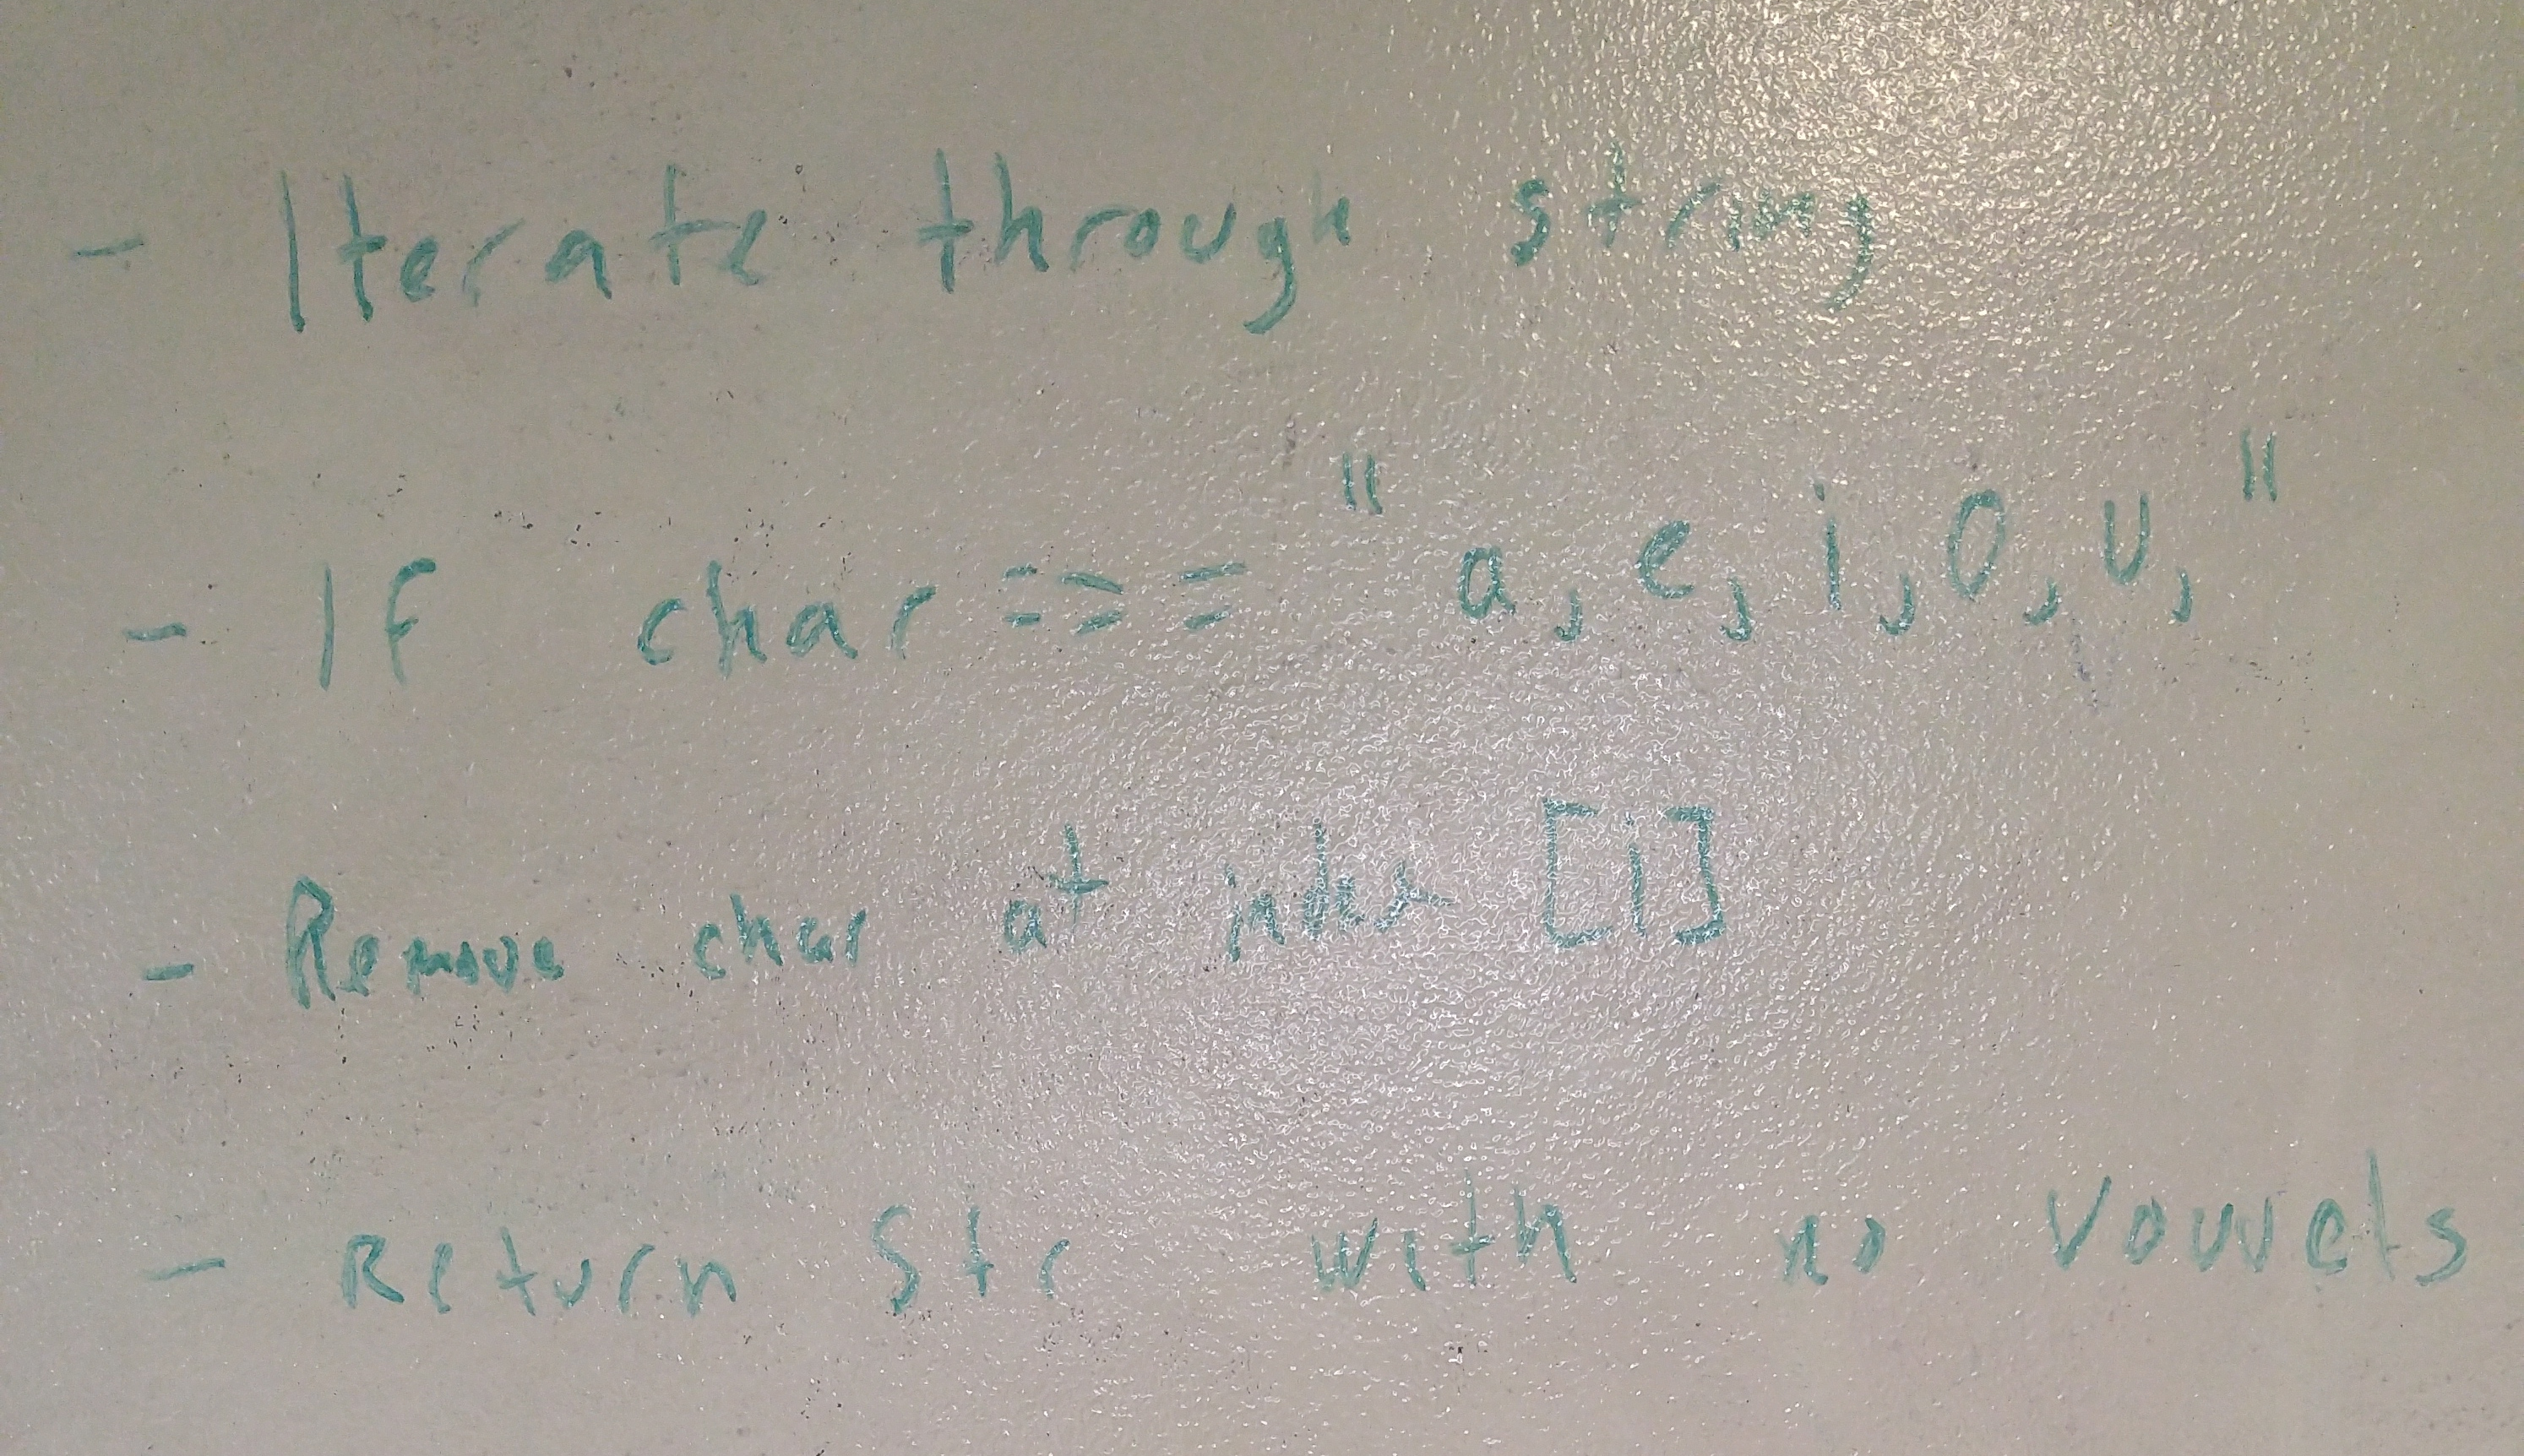 - Iterate through string
- If char === "a, e, i, o, u,"
- Remove char at index [i]
- Return Str with no vowels